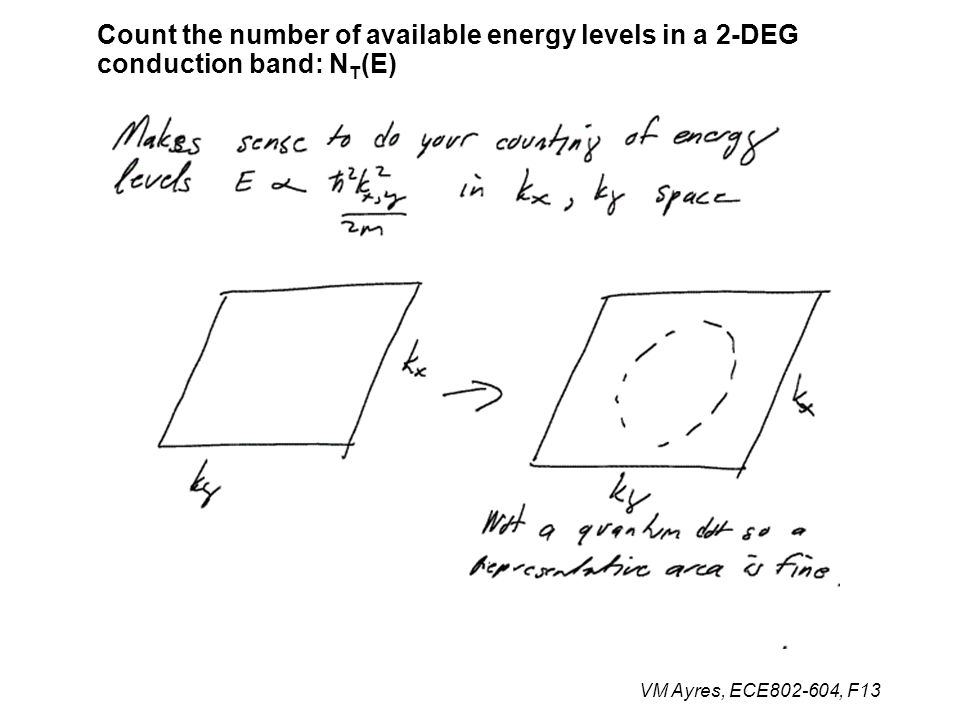 Count the number of available energy levels in a 2-DEG
conduction band: N_T(E)
Makes sense to do your counting of energy
levels E ∝ ħ²k²_x,y / 2m in kx, ky space
kx
ky
kx
ky
Not a quantum dot so a
representative area is fine.
VM Ayres, ECE802-604, F13